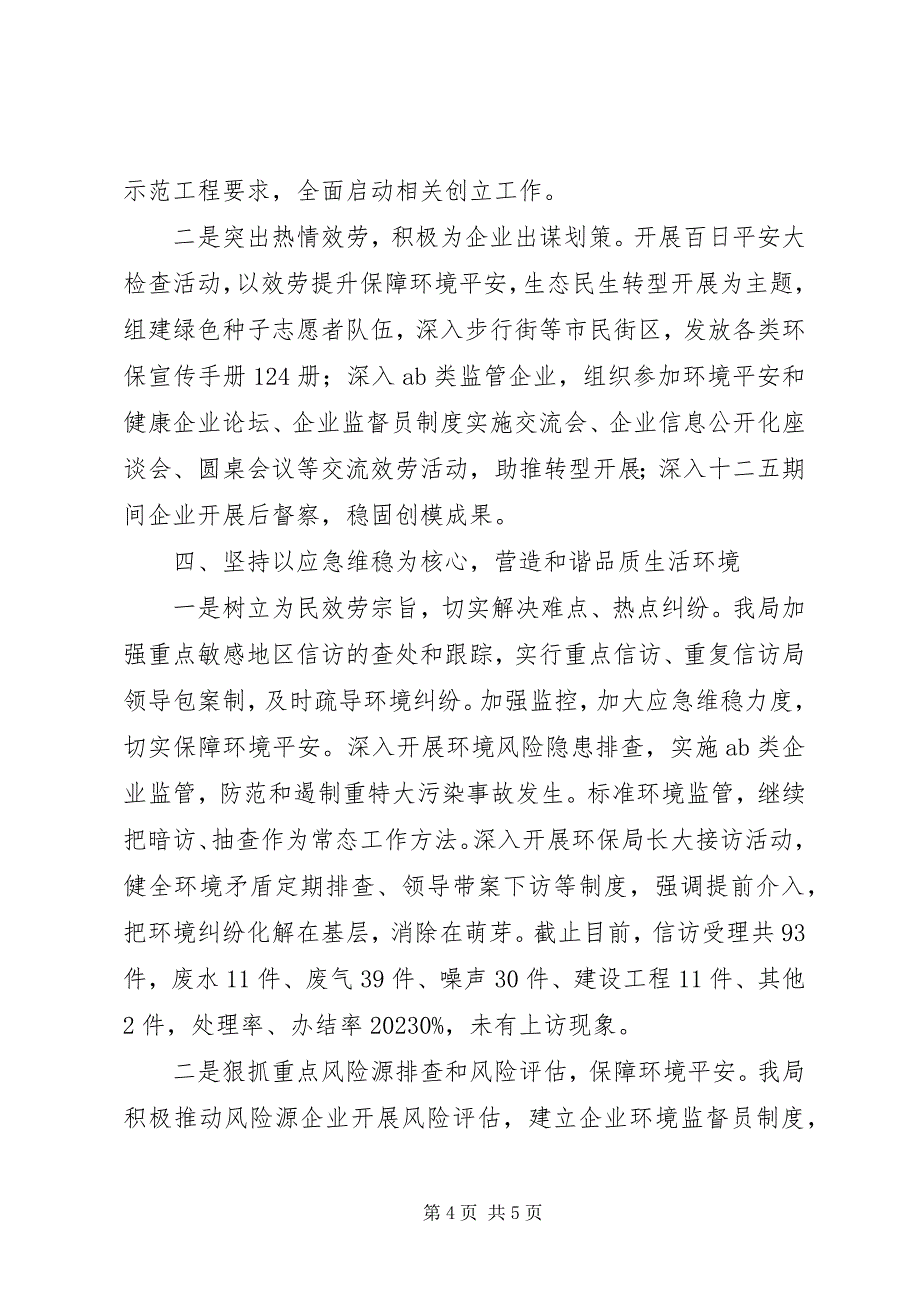 示范工程要求，全面启动相关创立工作。
二是突出热情效劳，积极为企业出谋划策。开展百日平安大
检查活动，以效劳提升保障环境平安，生态民生转型开展为主题，
组建绿色种子志愿者队伍，深入步行街等市民街区，发放各类环
保宣传手册 124 册；深入 ab 类监管企业，组织参加环境平安和
健康企业论坛、企业监督员制度实施交流会、企业信息公开化座
谈会、圆桌会议等交流效劳活动，助推转型开展；深入十二五期
间企业开展后督察，稳固创模成果。
四、坚持以应急维稳为核心，营造和谐品质生活环境
一是树立为民效劳宗旨，切实解决难点、热点纠纷。我局加
强重点敏感地区信访的查处和跟踪，实行重点信访、重复信访局
领导包案制，及时疏导环境纠纷。加强监控，加大应急维稳力度，
切实保障环境平安。深入开展环境风险隐患排查，实施 ab 类企
业监管，防范和遏制重特大污染事故发生。标准环境监管，继续
把暗访、抽查作为常态工作方法。深入开展环保局长大接访活动，
健全环境矛盾定期排查、领导带案下访等制度，强调提前介入，
把环境纠纷化解在基层，消除在萌芽。截止目前，信访受理共 93
件，废水 11 件、废气 39 件、噪声 30 件、建设工程 11 件、其他
2 件，处理率、办结率 20230%，未有上访现象。
二是狠抓重点风险源排查和风险评估，保障环境平安。我局
积极推动风险源企业开展风险评估，建立企业环境监督员制度，
第 4 页 共 5 页